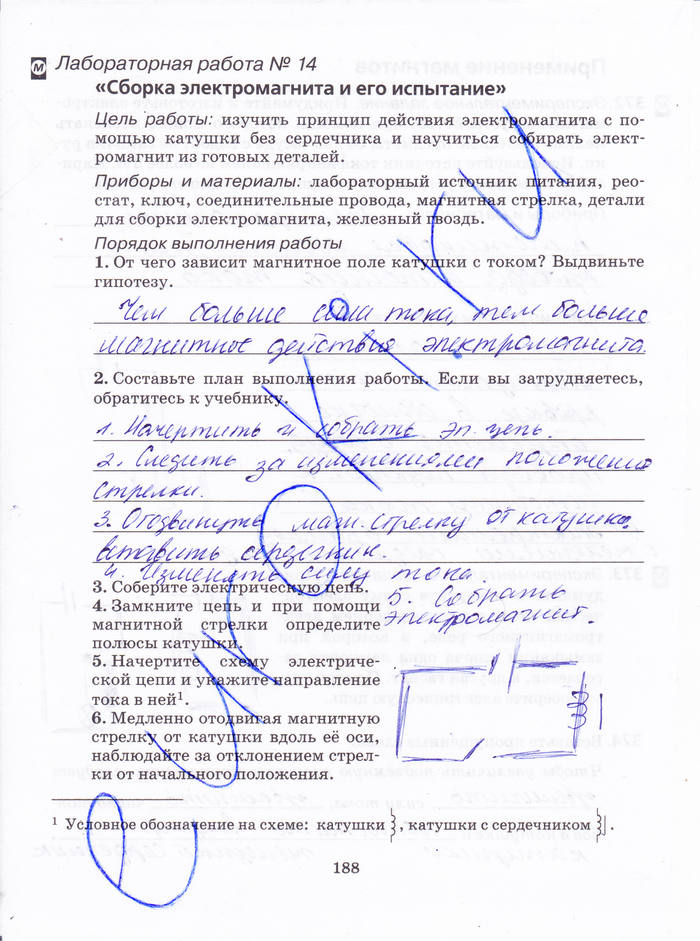 М Лабораторная работа № 14
«Сборка электромагнита и его испытание»
Цель работы: изучить принцип действия электромагнита с по-
мощью катушки без сердечника и научиться собирать элект-
ромагнит из готовых деталей.
Приборы и материалы: лабораторный источник питания, рео-
стат, ключ, соединительные провода, магнитная стрелка, детали
для сборки электромагнита, железный гвоздь.
Порядок выполнения работы
1. От чего зависит магнитное поле катушки с током? Выдвиньте
гипотезу.
Чем больше сила тока, тем больше
магнитное действия электромагнита.
2. Составьте план выполнения работы. Если вы затрудняетесь,
обратитесь к учебнику.
1. Начертить и собрать эл. цепь.
2. Следить за изменениями положения
стрелки.
3. Отодвинуть маг. стрелку от катушки.
вставить сердечник.
4. Изменять силу тока.
5. Собрать
электромагнит.
3. Соберите электрическую цепь.
4. Замкните цепь и при помощи
магнитной стрелки определите
полюсы катушки.
5. Начертите схему электриче-
ской цепи и укажите направление
тока в ней¹.
6. Медленно отодвигая магнитную
стрелку от катушки вдоль её оси,
наблюдайте за отклонением стрел-
ки от начального положения.
¹ Условное обозначение на схеме: катушки , катушки с сердечником .
188